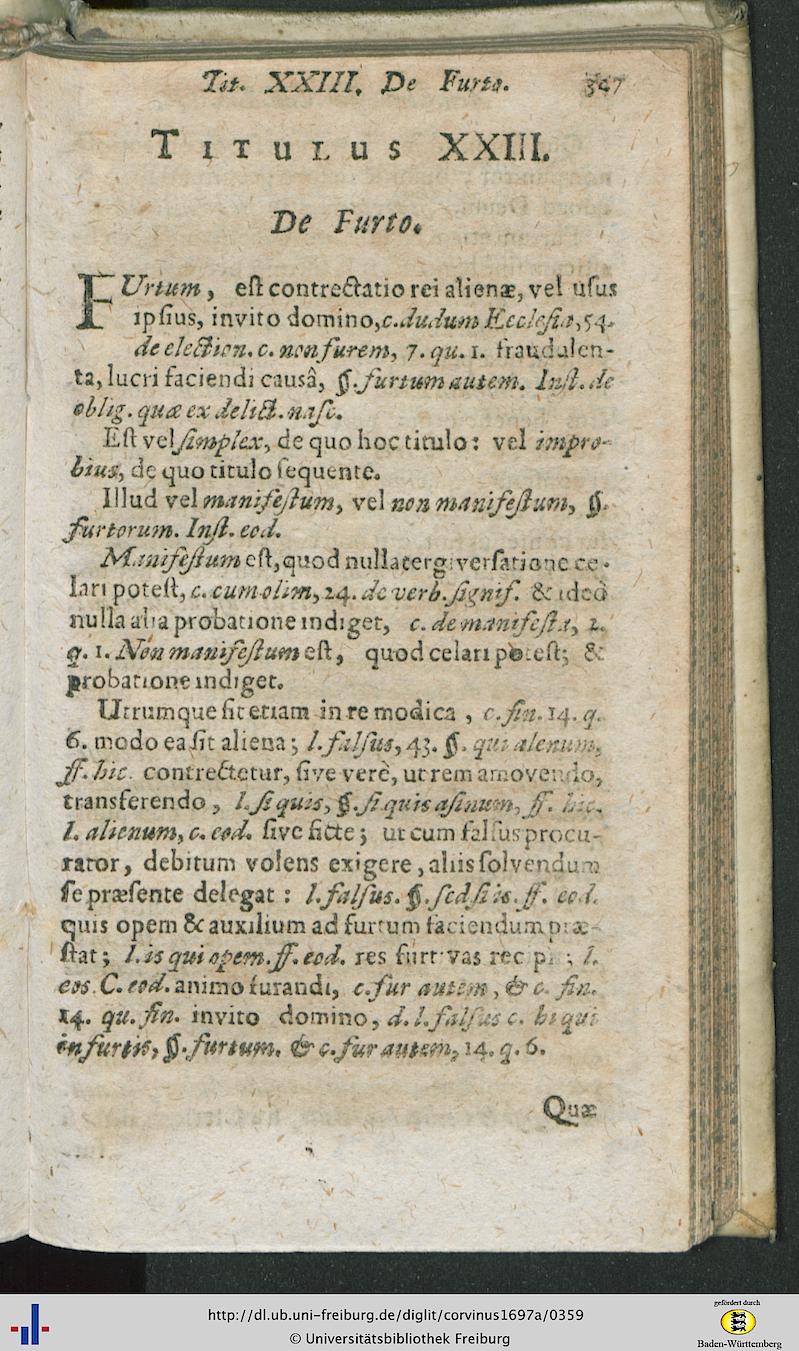 Tit. XXIII. De Furto. 347
TITULUS XXIII.
De Furto.
FUrtum, eſt contrectatio rei alienæ, vel uſus
ipſius, invito domino, c. dudum Eccleſia, 54.
de election. c. non furem, 7. qu. 1. fraudulen-
ta, lucri faciendi causâ, §. furtum autem. Inſt. de
oblig. quæ ex delict. naſc.
Eſt vel ſimplex, de quo hoc titulo: vel impro-
bius, de quo titulo ſequente.
Illud vel manifeſtum, vel non manifeſtum, §.
furtorum. Inſt. eod.
Manifeſtum eſt, quod nulla tergiverſatione ce-
lari poteſt, c. cum olim, 24. de verb. ſignif. & ideò
nulla alia probatione indiget, c. de manifeſta, 2.
q. 1. Non manifeſtum eſt, quod celari poteſt; &
probatione indiget.
Utrumque fit etiam in re modica, c. fin. 14. q.
6. modo ea ſit aliena; l. falſus, 43. §. qui alenum,
ff. hic. contrectetur, ſive verè, ut rem amovendo,
transferendo, l. ſi quis, §. ſi quis aſinum, ff. hic.
l. alienum, c. eod. ſive ficte; ut cum falſus procu-
rator, debitum volens exigere, aliis ſolvendum
ſe præſente delegat: l. falſus. §. ſed ſi is. ff. eod.
quis opem & auxilium ad furtum faciendum præ-
ſtat; l. is qui opem. ff. eod. res furtivas recipit; l.
eos. C. eod. animo furandi, c. fur autem, & c. fin.
14. qu. fin. invito domino, d. l. falſus c. hi qui
in furtis, §. furtum. & c. fur autem, 14. q. 6.
Quæ
http://dl.ub.uni-freiburg.de/diglit/corvinus1697a/0359
© Universitätsbibliothek Freiburg
gefördert durch
Baden-Württemberg